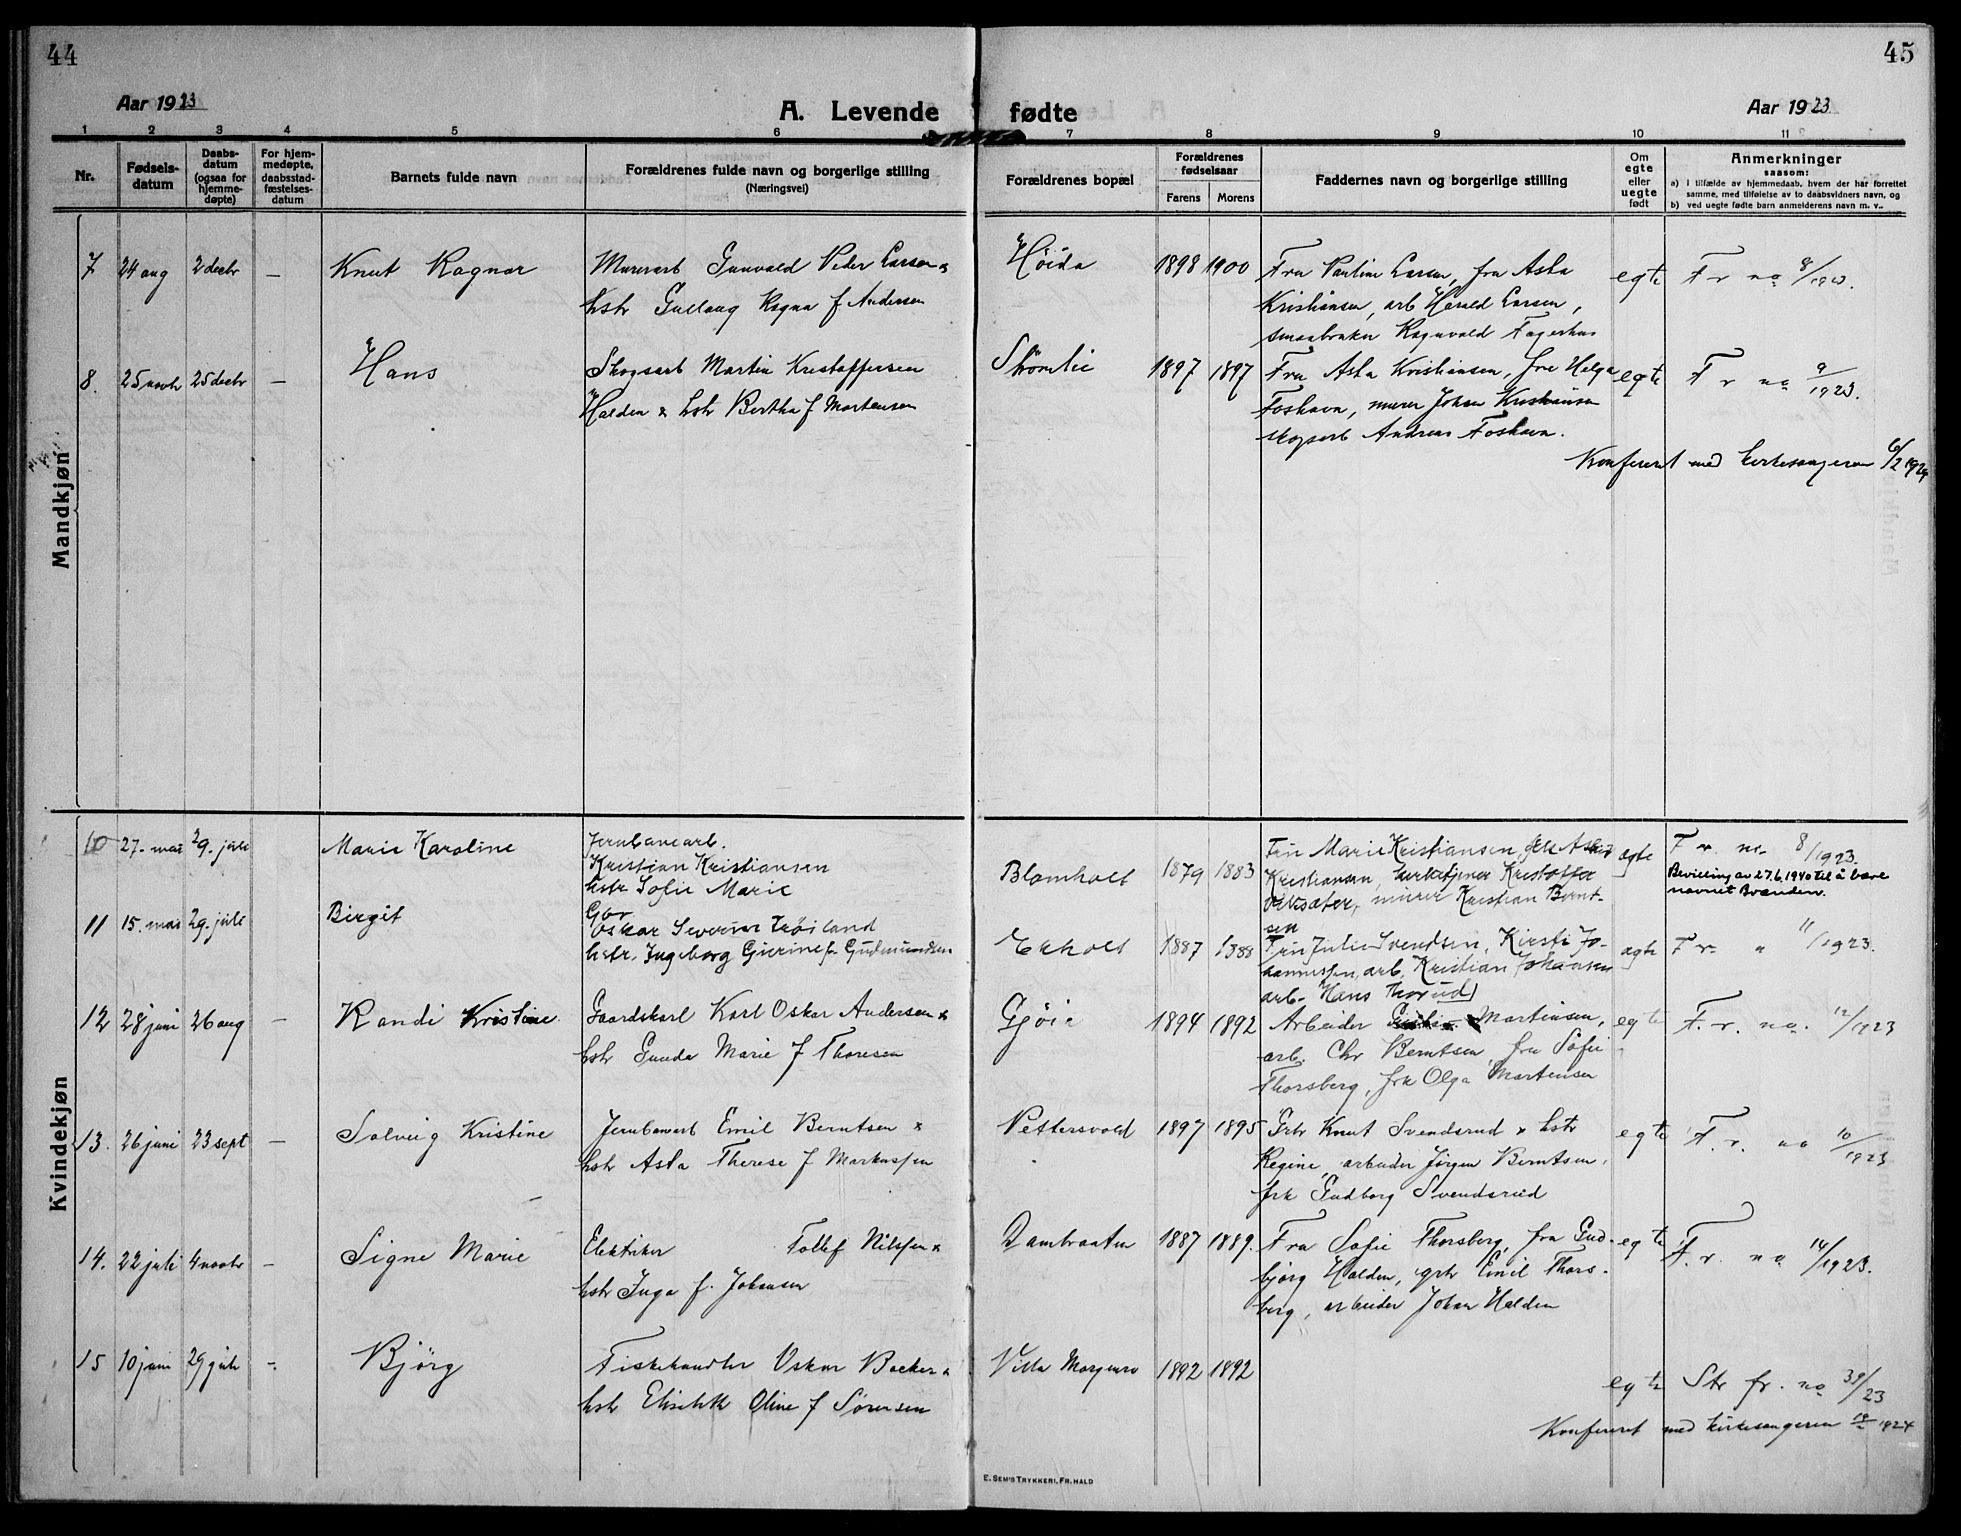 44
45
Aar 1923
A. Levende fødte
Aar 1923
1 2 3 4 5 6 7 8 9 10 11
Nr.
Fødsels-
datum
Daabs-
datum
(ogsaa for
hjemme-
døpte)
For hjem-
medøpte,
daabsstad-
fæstelses-
datum
Barnets fulde navn
Forældrenes fulde navn og borgerlige stilling
(Næringsvei)
Forældrenes bopæl
Forældrenes
fødselsaar
Farens Morens
Faddernes navn og borgerlige stilling
Om
egte
eller
uegte
født
Anmerkninger
saasom:
a) i tilfælde av hjemmedaab, hvem der har forrettet
samme, med tilføielse av to daabsvidners navn, og
b) ved uegte fødte barn anmelderens navn m. v..
Mandkjøn
7 24 aug 2 decbr — Knut Ragnar
Murerarb Gunvald Peder Larsen &
hstr Gullaug Ragna f Andersen
Høida 1898 1900
Fru Pauline Larsen, fru Asta
Kristiansen, arb Harald Larsen,
smaabruker Ragnvald Fagerhus
egte F r no 8/1923.
8. 25 novbr 25 decbr — Hans
Skogsarb Martin Kristoffersen
Halden & hstr Bertha f Martensen
Strömlie 1897 1897
Fru Asta Kristiansen, fru Helga
Foshavn, murer Johan Kristiansen
skogsarb Andreas Foshavn.
egte F r no 9/1923.
Konfereret med kirkesangeren 6/2 1924
Kvindekjøn
10 27. mai 29. juli Marie Karoline
Jernbanearb.
Kristian Kristiansen
hstr Sofie Marie
Blomholt 1879 1883
Fru Marie Kristiansen, frk Astrid
Kristiansen, kirketjener Kristoffer
Viksæter, murer Kristian Bernt-
sen
egte F r. no. 8/1923.
Bevilling av 27.6.1940 til å bære
navnet Brænden.
11 15. mai 29. juli Birgit
Gbr
Oskar Severin Trøiland
hstr. Ingeborg Gurine f. Gudmundsen
Ekholt 1887 1888
Fru Julie Svendsen, Kirsti Jo-
hannessen, arb. Kristian Johansen
arb. Hans Thorud
egte F r. " 11/1923.
12 28 juni 26 aug — Randi Kristine
Gaardskarl Karl Oskar Andersen &
hstr Gunda Marie f Thoresen
Gjöia 1894 1892
Arbeider Martinsen,
arb. Chr Berntsen, fru Sofie
Thorsberg, frk Olga Martensen
egte F. r. no. 12/1923
13. 26 juni 23 sept — Solveig Kristine
Jernbanearb Emil Berntsen &
hstr Asta Therese f Markussen
Pettersvold 1897 1895
Grbr Knut Svendsrud & hstr
Regine, arbeider Jörgen Berntsen,
frk Gudborg Svendsrud
egte F. r. no 10/1923
14. 22 juli 4 novbr — Signe Marie
Elektriker Tollef Nilssen &
hstr Inga f. Johansen
Dambraaten 1887 1889.
Fru Sofie Thorsberg, fru Gud-
bjørg Halden, grbr Emil Thors-
berg, arbeider Johan Halden
egte F. r. no 14/1923.
15 10 juni 29 juli — Bjørg
Fiskehandler Oskar Backer &
hstr Elisabeth Oline f Sørensen
Villa Morgenro 1892 1892
egte Str fr. no 39/23
Konfereret med kirkesangeren 1924
E. SEM'S TRYKKERI, FR. HALD